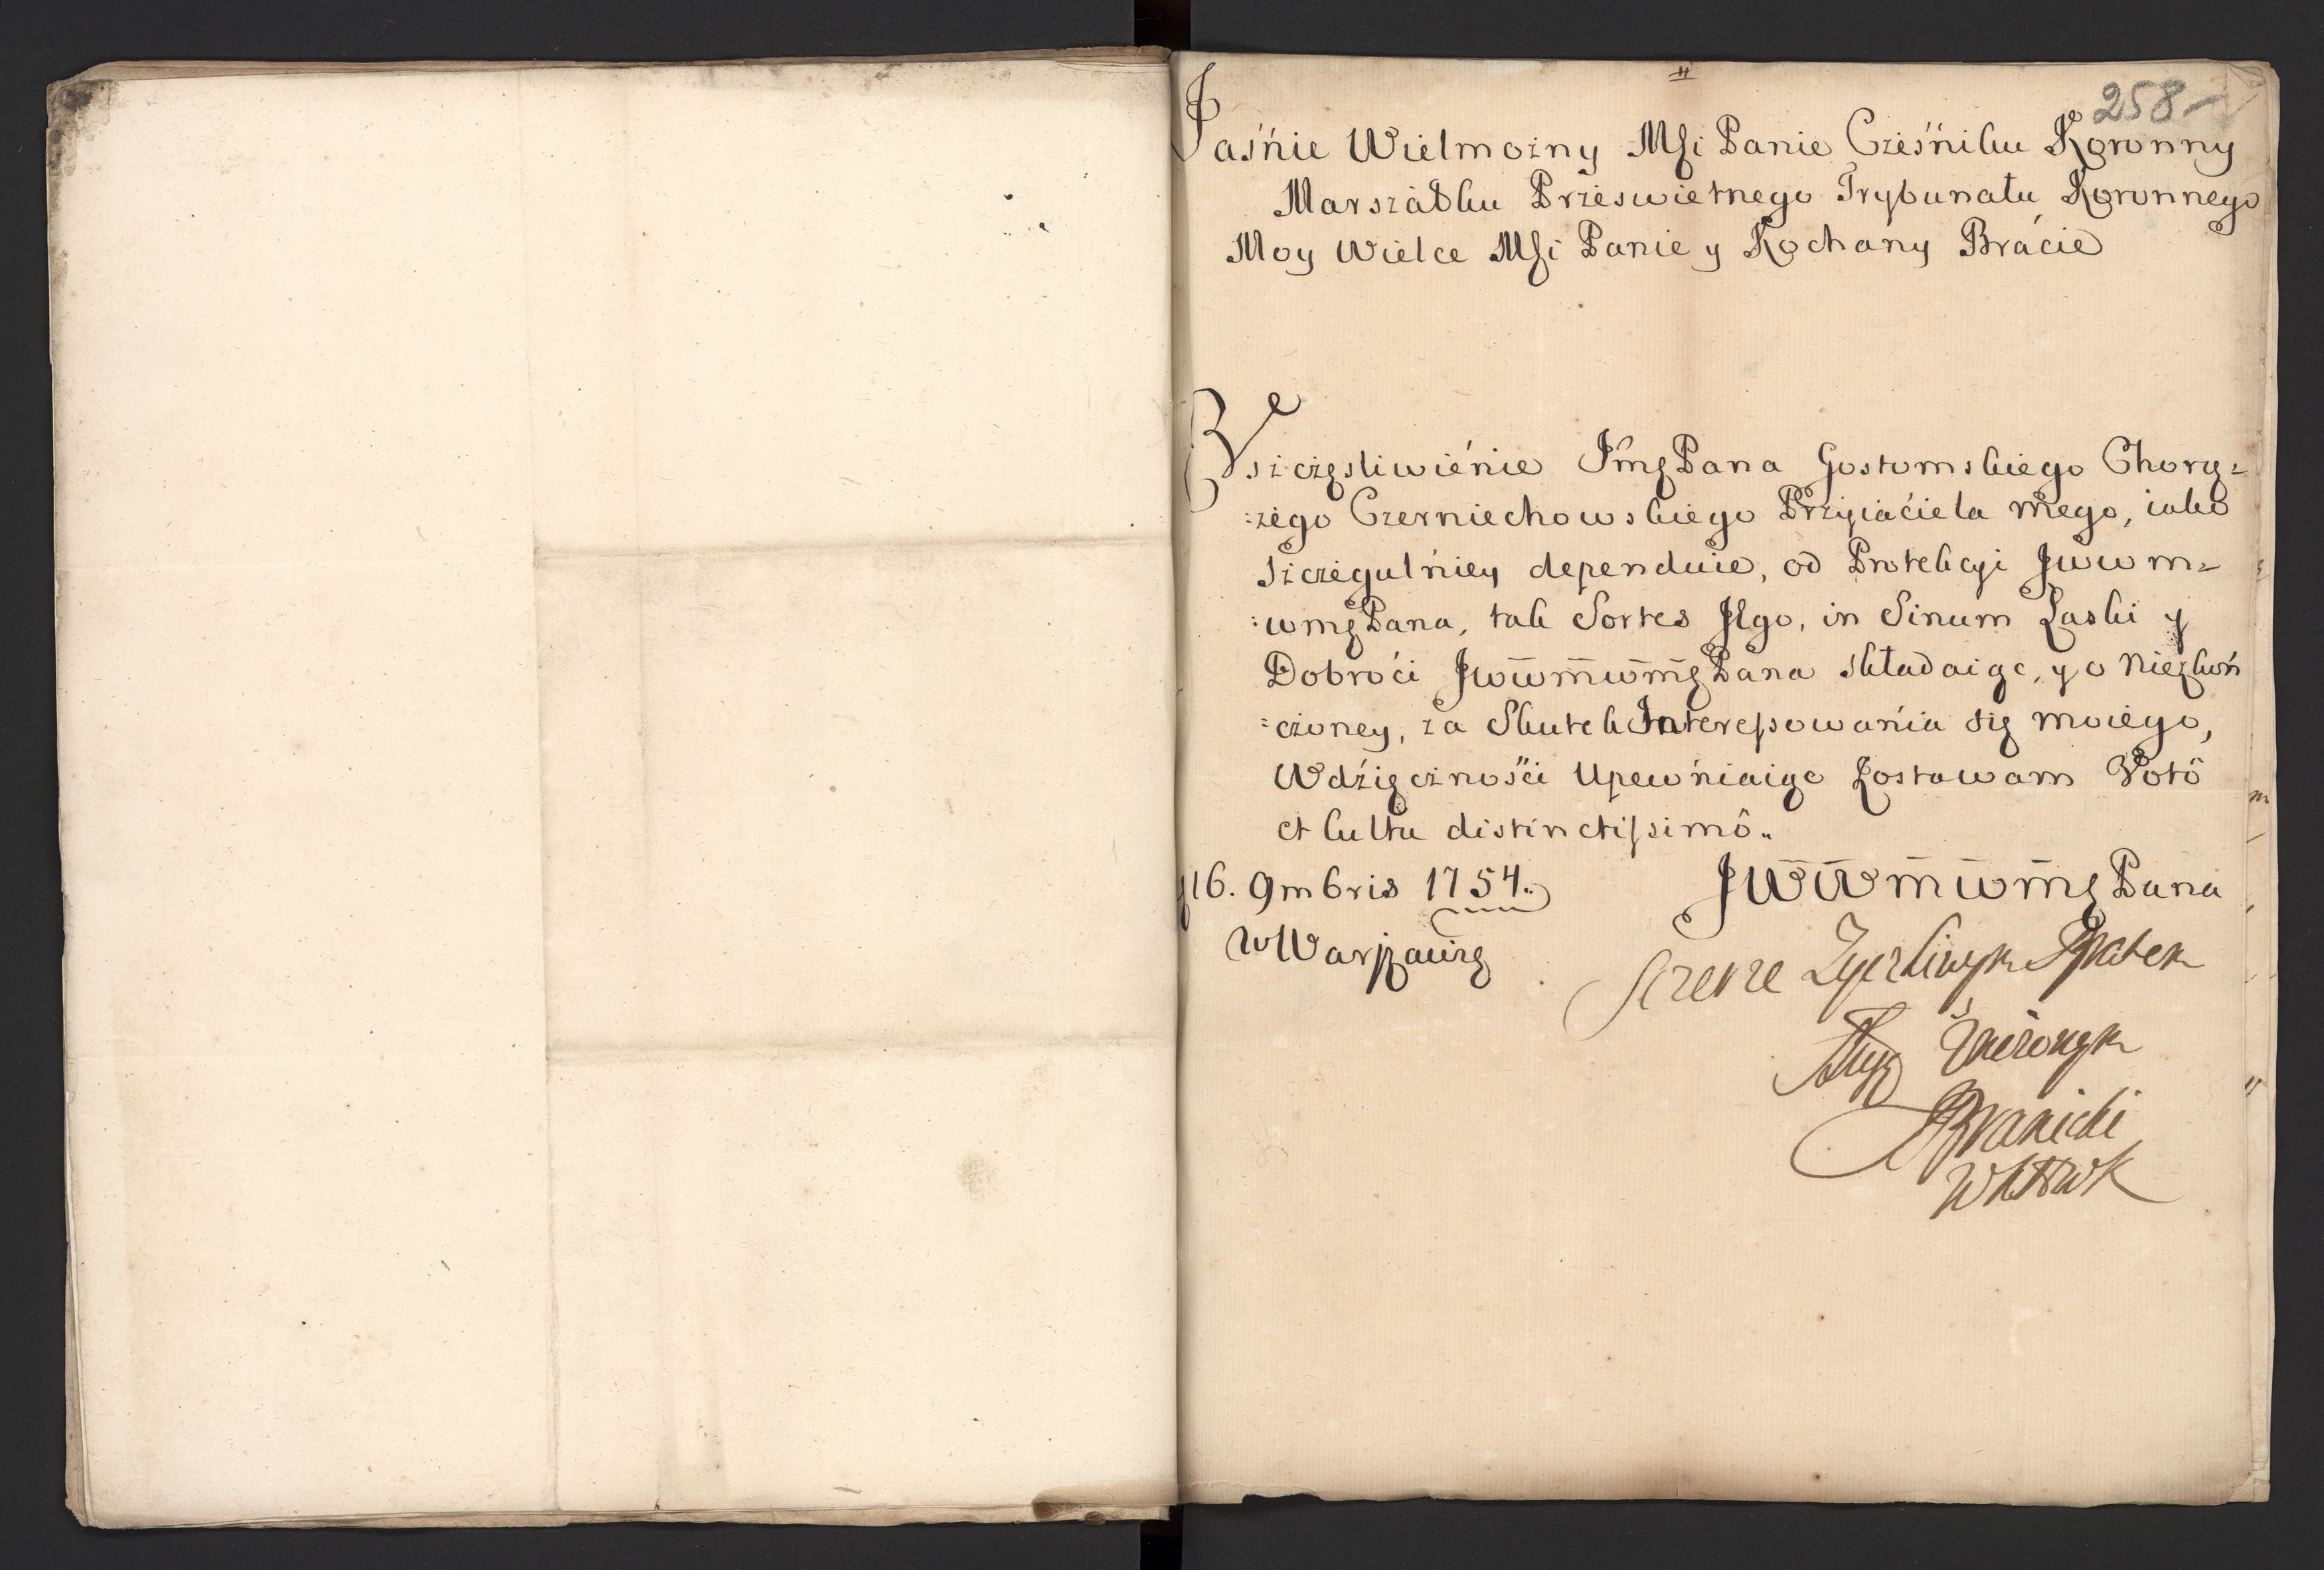 258
Jaśnie Wielmożny MSci Panie Cześniku Koronny
Marszałku Prześwietnego Trybunału Koronnego
Moy Wielce MSci Panie y Kochany Bracie
Uszczęsliwienie JmęPana Gostomskiego Chorą=
:żego Czerniechowskiego Przyiaciela mego, iako
Szczegulniey dependuie, od Protekcyi Jwwm=
:wmęPana, tak Sortes Jego, in Sinum Łaski y
Dobroci JwwmwmęPana składaiąc, y o Niezkoń
:czoney, za Skutek Interessowania się moiego,
Wdzięczności Upewniaiąc Zostawam Votô
et kultu distinctissimô..
d 16. 9mbris 1754..
w Warszawie
JWWmwmę Pana
szerze Zyczliwym Bratem
Sługą Uniżonym
JKBranicki
WKHWK